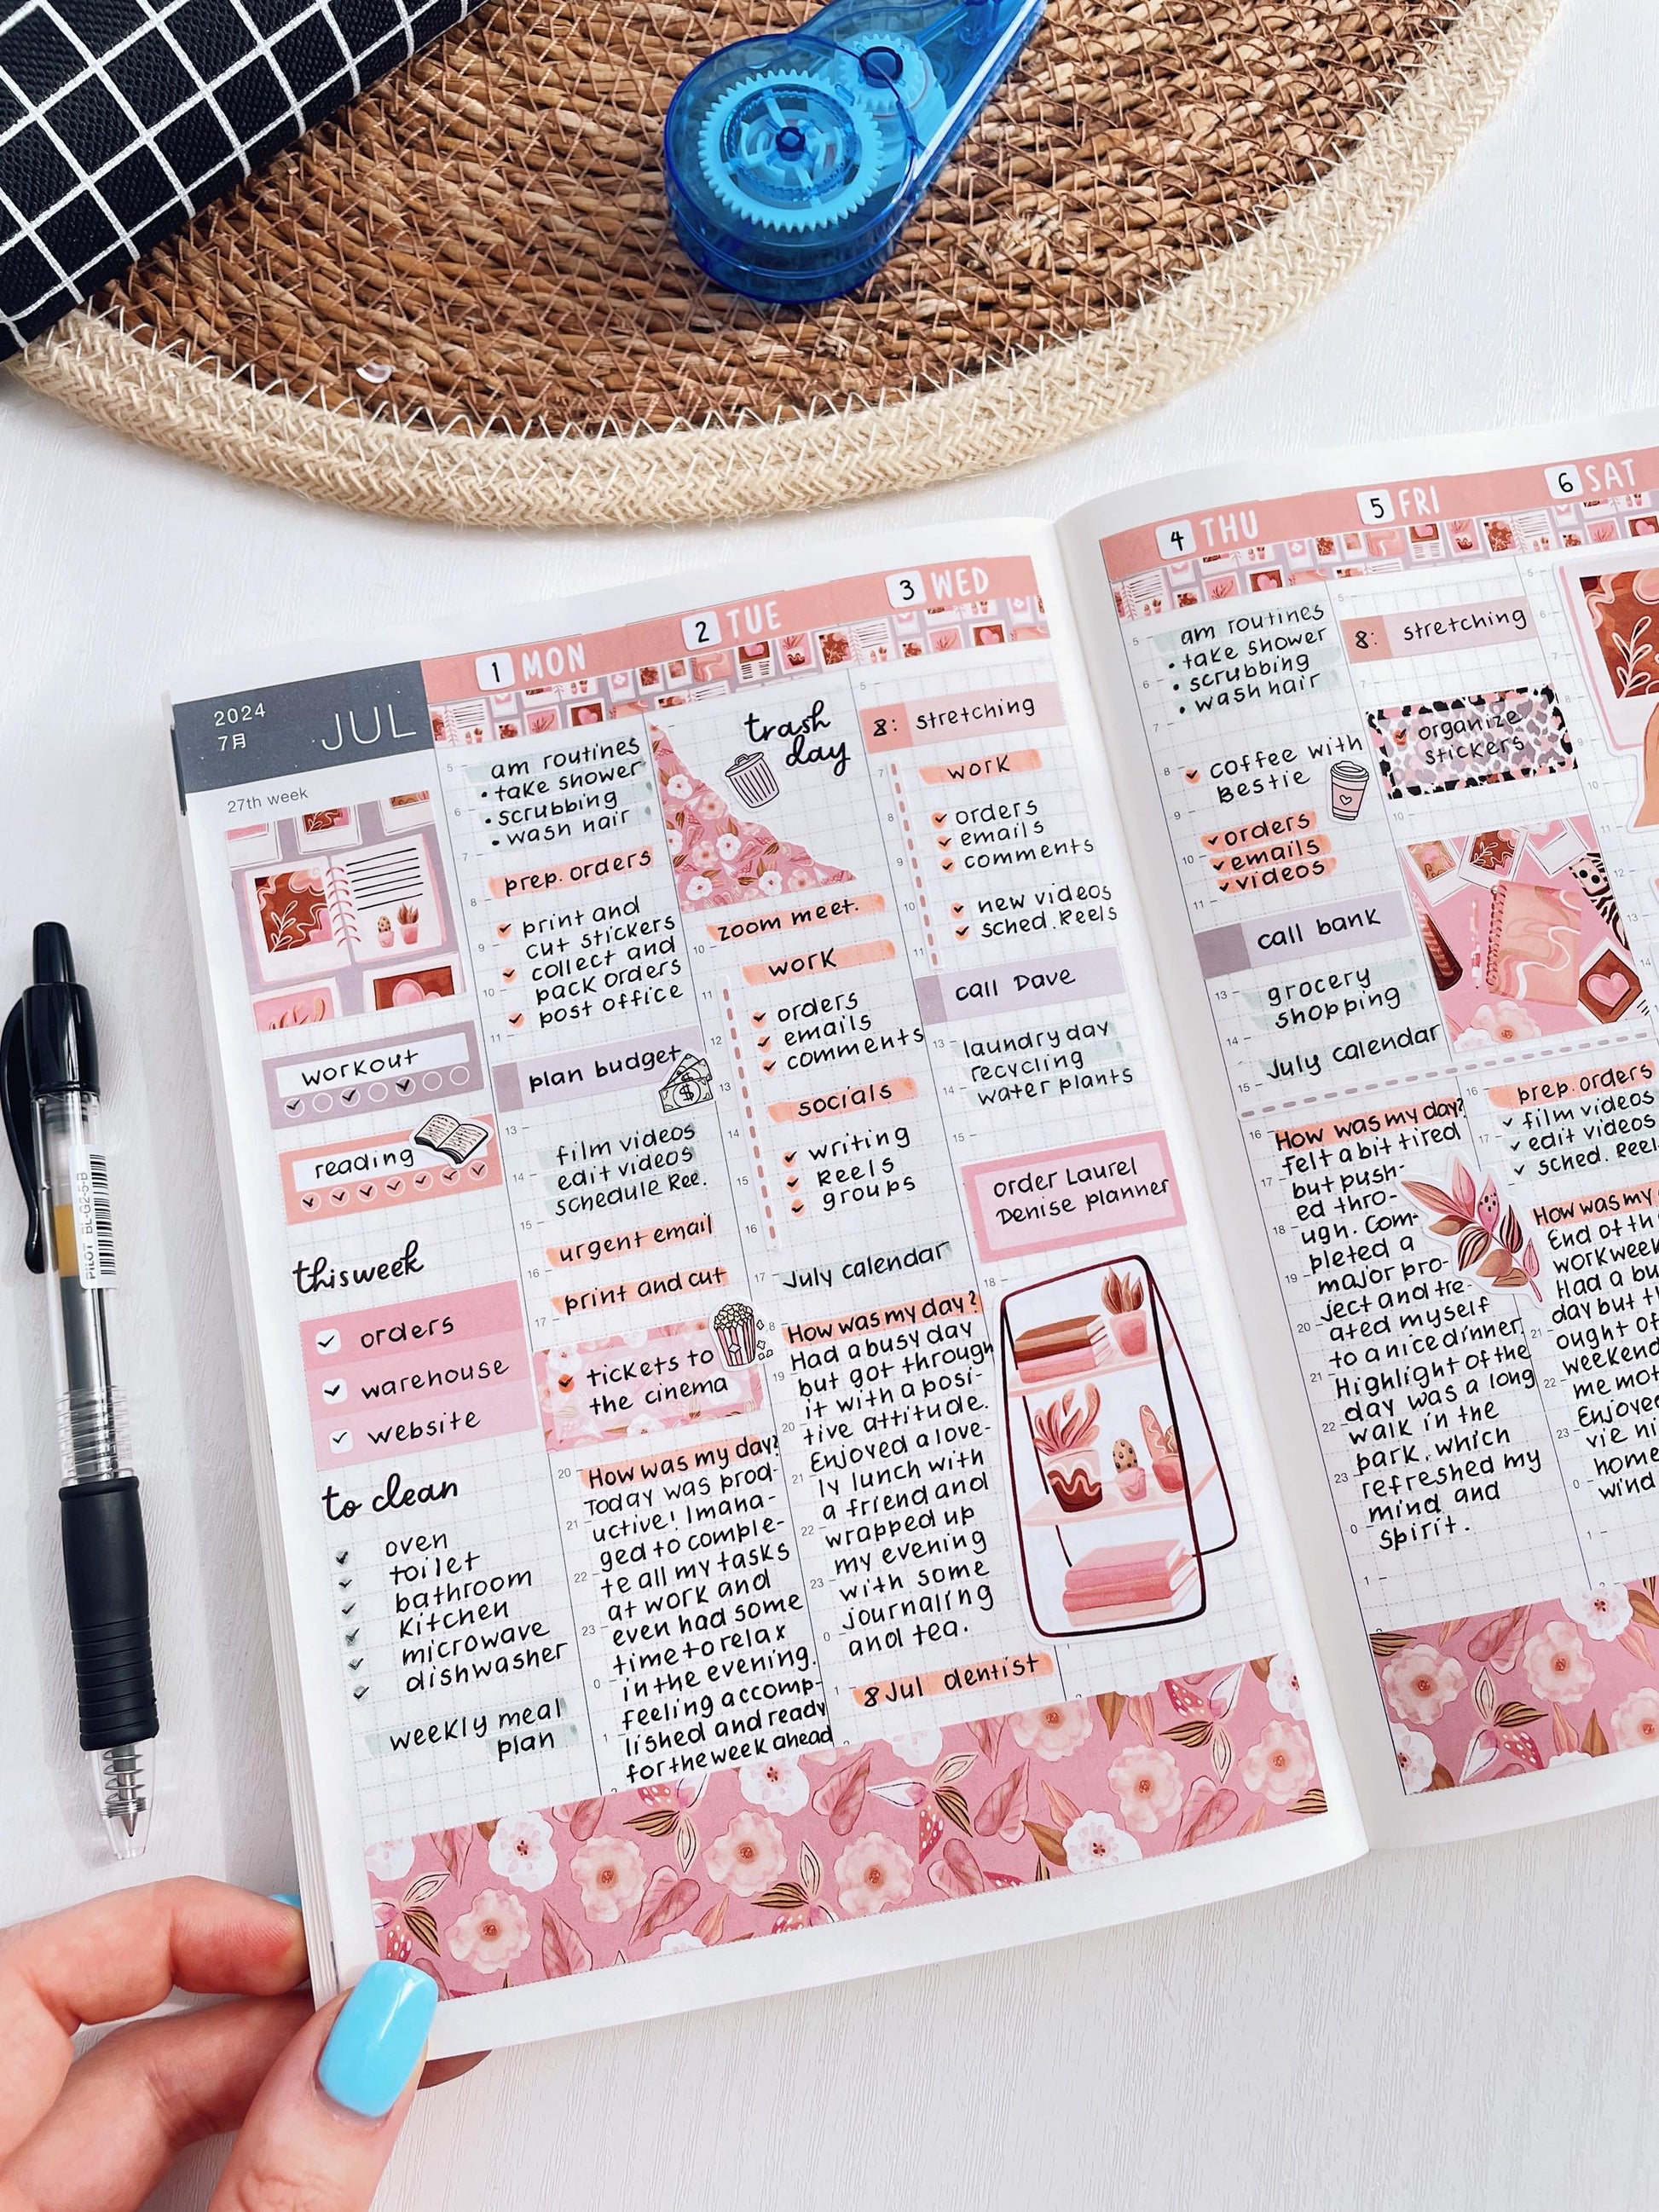 2024
7月
JUL
27th week
workout
reading
this week
orders
warehouse
website
to clean
oven
toilet
bathroom
kitchen
microwave
dishwasher
weekly meal
plan
1 MON
am routines
• take shower
• scrubbing
• wash hair
prep. orders
print and
cut stickers
collect and
pack orders
post office
plan budget
film videos
edit videos
schedule Ree.
urgent email
print and cut
tickets to
the cinema
How was my day?
Today was prod-
uctive! I mana-
ged to comple-
te all my tasks
at work and
even had some
time to relax
in the evening.
feeling accomp-
lished and ready
for the week ahead
2 TUE
trash
day
zoom meet.
work
orders
emails
comments
socials
writing
Reels
groups
July calendar
How was my day?
Had a busy day
but got through
it with a posi-
tive attitude.
Enjoyed a love-
ly lunch with
a friend and
wrapped up
my evening
with some
journaling
and tea.
8 Jul dentist
3 WED
8: stretching
work
orders
emails
comments
new videos
sched. Reels
call Dave
laundry day
recycling
water plants
order Laurel
Denise planner
4 THU
am routines
• take shower
• scrubbing
• wash hair
coffee with
Bestie
orders
emails
videos
call bank
grocery
shopping
July calendar
How was my day?
felt a bit tired
but push-
ed thro-
ugh. Com-
pleted a
major pro-
ject and tre-
ated myself
to a nice dinner.
Highlight of the
day was a long
walk in the
park, which
refreshed my
mind and
spirit.
5 FRI
8: stretching
organize
stickers
prep. orders
film videos
edit videos
sched. Reel
How was my
End of th
workweek
Had a bu
day but th
ought of
weekend
me mot
Enjoye
vie ni
home
wind
6 SAT
PILOT BL-G2-5-B